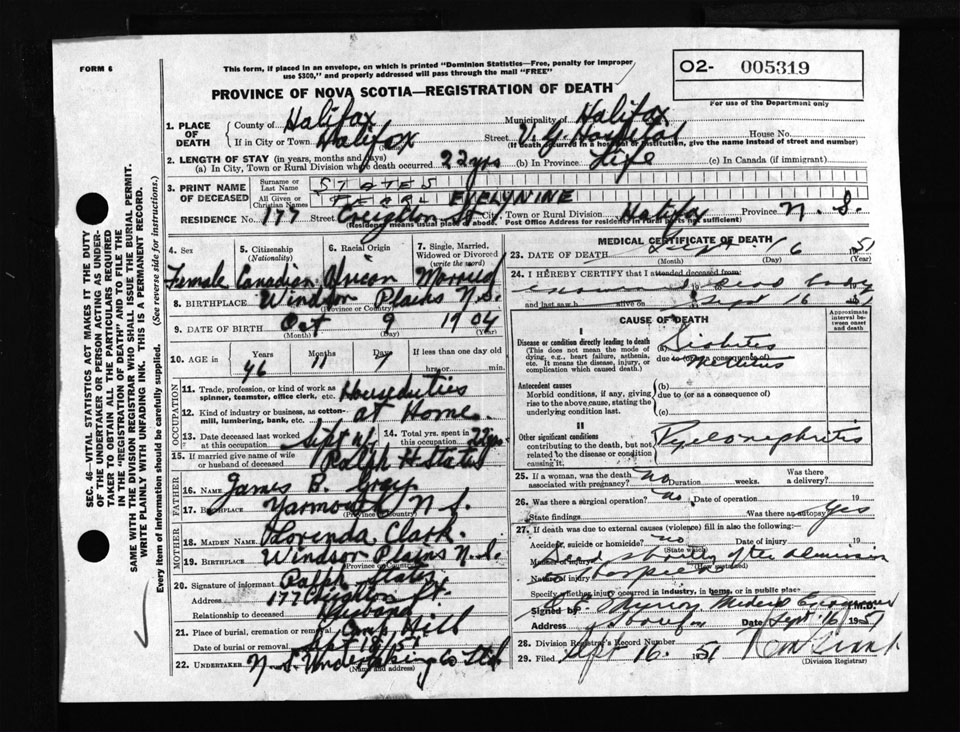 FORM 6
This form, if placed in an envelope, on which is printed "Dominion Statistics—Free, penalty for improper
use $300," and properly addressed will pass through the mail "FREE"
O2- 005319
For use of the Department only
PROVINCE OF NOVA SCOTIA—REGISTRATION OF DEATH
1. PLACE OF DEATH
County of Halifax Municipality of Halifax
If in City or Town Halifax Street V.G. Hospital House No.
(If death occurred in a hospital or institution, give the name instead of street and number)
2. LENGTH OF STAY (in years, months and days)
(a) In City, Town or Rural Division where death occurred 22 yrs (b) In Province Life (c) In Canada (if immigrant)
3. PRINT NAME OF DECEASED
Surname or Last Name STATES
All Given or Christian Names PEARL EVELYNINE
RESIDENCE No. 177 Street Creighton St. City, Town or Rural Division Halifax Province N. S.
(Residence means usual place of abode. Post Office Address for residents in Rural not sufficient)
4. Sex Female
5. Citizenship (Nationality) Canadian
6. Racial Origin
7. Single, Married, Widowed or Divorced (write the word) Married
8. BIRTHPLACE Windsor Plains N.S.
(Province or Country)
9. DATE OF BIRTH Oct 9 1904
(Month) (Day) (Year)
10. AGE in Years 46 Months 11 Days 7 If less than one day old
hrs. or min.
OCCUPATION
11. Trade, profession, or kind of work as spinner, teamster, office clerk, etc. Houseduties
12. Kind of industry or business, as cotton-mill, lumbering, bank, etc. at Home.
13. Date deceased last worked at this occupation Sept
14. Total yrs. spent in this occupation 22 yrs
15. If married give name of wife or husband of deceased Ralph H. States
FATHER
16. NAME James B.
17. BIRTHPLACE Yarmouth N S.
(Province or Country)
MOTHER
18. MAIDEN NAME Lorenda Clark.
19. BIRTHPLACE Windsor Plains N.S.
(Province or Country)
20. Signature of informant Ralph States
Address 177 Creighton St.
Relationship to deceased Husband
21. Place of burial, cremation or removal Camp Hill
Date of burial or removal Sept 18/51
22. UNDERTAKER N. S. Undertaking Co Ltd.
MEDICAL CERTIFICATE OF DEATH
23. DATE OF DEATH Sept 16 1951
(Month) (Day) (Year)
24. I HEREBY CERTIFY that I attended deceased from
examined dead body
and last saw h alive on Sept 16 1951
CAUSE OF DEATH
Approximate interval between onset and death
I
Disease or condition directly leading to death
(This does not mean the mode of dying, e.g., heart failure, asthenia, etc. It means the disease, injury, or complication which caused death.)
(a) Diabetes
due to (or as a consequence of)
Mellitus
Antecedent causes
Morbid conditions, if any, giving rise to the above cause, stating the underlying condition last.
(b)
due to (or as a consequence of)
(c)
II
Other significant conditions contributing to the death, but not related to the disease or condition causing it.
Pyelonephritis
25. If a woman, was the death associated with pregnancy? no Duration weeks. Was there a delivery?
26. Was there a surgical operation? no Date of operation 19
State findings Was there an autopsy? yes
27. If death was due to external causes (violence) fill in also the following:—
Accident, suicide or homicide? no Date of injury 19
(State which)
Manner of injury Dead shortly after admission
Nature of injury to hospital
Specify whether injury occurred in industry, in home, or in public place
Signed by Murray Medical Examiner M.D.
Address Halifax Date Sept. 16 1951
28. Division Registrar's Record Number
29. Filed Sept 16. 1951
(Division Registrar)
SEC. 46—VITAL STATISTICS ACT MAKES IT THE DUTY
OF THE UNDERTAKER OR PERSON ACTING AS UNDER-
TAKER TO OBTAIN ALL THE PARTICULARS REQUIRED
IN THE "REGISTRATION OF DEATH" AND TO FILE THE
SAME WITH THE DIVISION REGISTRAR WHO SHALL ISSUE THE BURIAL PERMIT.
WRITE PLAINLY WITH UNFADING INK. THIS IS A PERMANENT RECORD.
Every item of information should be carefully supplied. (See reverse side for instructions.)